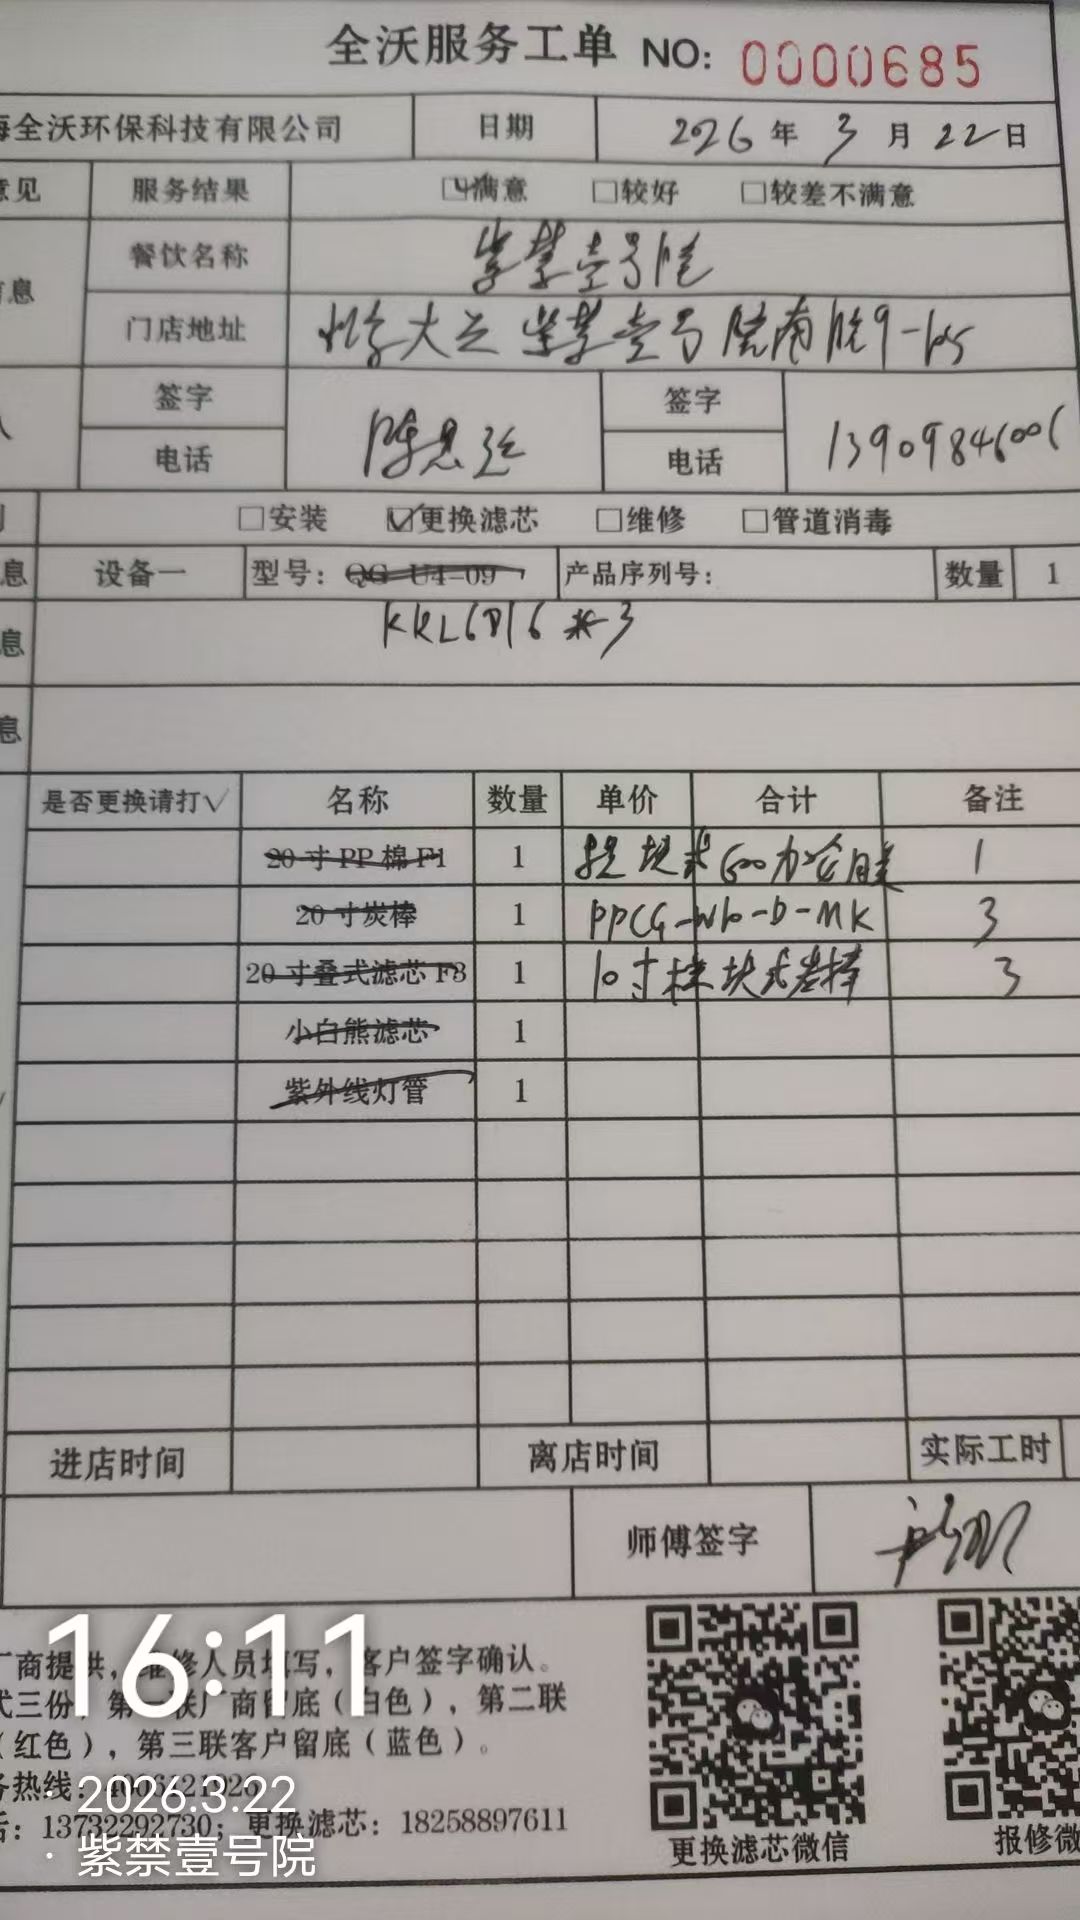 全沃服务工单 NO: 0000685
海全沃环保科技有限公司 日期 2026年3月22日
意见 服务结果 ☑满意 □较好 □较差不满意
信息 餐饮名称 紫禁壹号院
门店地址 大兴 紫禁壹号院南院9-105
签字 陈思 签字
电话 电话 13909846006
□安装 ☑更换滤芯 □维修 □管道消毒
息 设备一 型号: QG-U4-09 产品序列号: 数量 1
息 KRL6816*3
息
是否更换请打√ 名称 数量 单价 合计 备注
20寸PP棉F1 1 600加仑 1
20寸炭棒 1 PPCG-W10-D-MK 3
20寸叠式滤芯F3 1 10寸 块式炭棒 3
小白熊滤芯 1
紫外线灯管 1
进店时间 离店时间 实际工时
师傅签字
16:11
厂商提供,维修人员填写,客户签字确认。
式三份,第一联厂商留底(白色),第二联
(红色),第三联客户留底(蓝色)。
务热线:
2026.3.22
13732292730;更换滤芯:18258897611
· 紫禁壹号院
更换滤芯微信 报修微